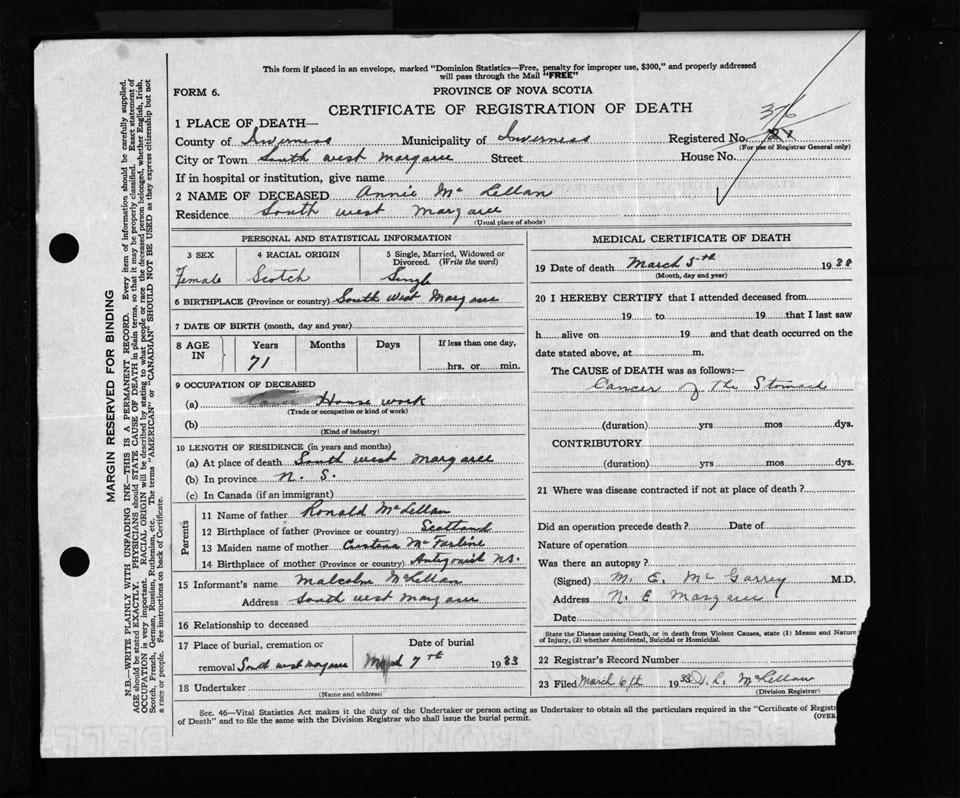 This form if placed in an envelope, marked "Dominion Statistics—Free, penalty for improper use, $300," and properly addressed
will pass through the Mail "FREE"
FORM 6.
PROVINCE OF NOVA SCOTIA
CERTIFICATE OF REGISTRATION OF DEATH
1 PLACE OF DEATH—
376
County of Inverness Municipality of Inverness Registered No.
(For use of Registrar General only)
City or Town South west margaree Street House No.
If in hospital or institution, give name
2 NAME OF DECEASED Annie Mc Lellan
Residence South west margaree
(Usual place of abode)
PERSONAL AND STATISTICAL INFORMATION
3 SEX 4 RACIAL ORIGIN 5 Single, Married, Widowed or
Divorced. (Write the word)
Female Scotch Single
6 BIRTHPLACE (Province or country) South West Margaree
7 DATE OF BIRTH (month, day and year)
8 AGE IN Years Months Days If less than one day,
71 hrs. or min.
9 OCCUPATION OF DECEASED
(a) House work
(Trade or occupation or kind of work)
(b)
(Kind of industry)
10 LENGTH OF RESIDENCE (in years and months)
(a) At place of death South west margaree
(b) In province N. S.
(c) In Canada (if an immigrant)
Parents
11 Name of father Ronald McLellan
12 Birthplace of father (Province or country) Scotland
13 Maiden name of mother Mc Farline
14 Birthplace of mother (Province or country) Antigonish NS.
15 Informant's name Malcolm McLellan
Address South west margaree
16 Relationship to deceased
17 Place of burial, cremation or Date of burial
removal South west margaree 7th 1933
18 Undertaker
(Name and address)
MEDICAL CERTIFICATE OF DEATH
19 Date of death March 5th 193
(Month, day and year)
20 I HEREBY CERTIFY that I attended deceased from
19 to 19 that I last saw
h alive on 19 and that death occurred on the
date stated above, at m.
The CAUSE of DEATH was as follows:—
Cancer of the Stomach
(duration) yrs mos dys.
CONTRIBUTORY
(duration) yrs mos dys.
21 Where was disease contracted if not at place of death?
Did an operation precede death? Date of
Nature of operation
Was there an autopsy?
(Signed) M. E. Mc Garrey M.D.
Address N. E Margaree
Date
State the Disease causing Death, or in death from Violent Causes, state (1) Means and Nature
of Injury, (2) whether Accidental, Suicidal or Homicidal.
22 Registrar's Record Number
23 Filed March 6th 1933 McLellan
(Division Registrar)
Sec. 46—Vital Statistics Act makes it the duty of the Undertaker or person acting as Undertaker to obtain all the particulars required in the "Certificate of Regist
of Death" and to file the same with the Division Registrar who shall issue the burial permit.
(OVER
MARGIN RESERVED FOR BINDING
N.B.—WRITE PLAINLY WITH UNFADING INK—THIS IS A PERMANENT RECORD. Every item of information should be carefully supplied.
AGE should be stated EXACTLY. PHYSICIANS should STATE CAUSE OF DEATH in plain terms, so that it may be properly classified. Exact statement of
OCCUPATION is very important. RACIAL ORIGIN will be described by stating to what people or race the deceased person belonged, whether English, Irish,
Scotch, French, German, Russian, Ruthenian, etc. The terms "AMERICAN" or "CANADIAN" SHOULD NOT BE USED as they express citizenship but not
a race or people. See instructions on back of Certificate.